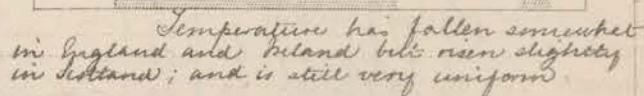 Temperature has fallen somewhat
in England and Ireland but risen slightly
in Scotland; and is still very uniform